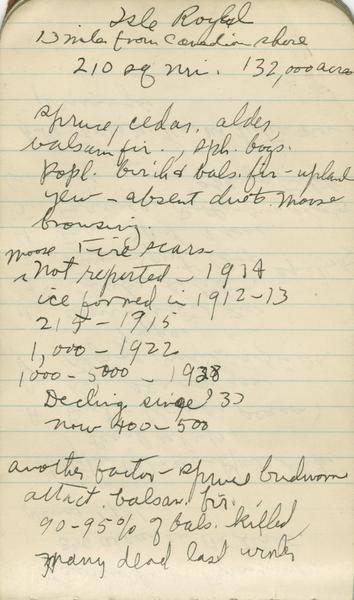 Isle Royal
13 miles from Canadian shore
210 sq mi. 132,000 acres
spruce, cedar, alder,
balsam fir., sph. bogs.
Popl. birch & bals. fir - upland
yew - absent due to moose
browsing.
Fire scars
moose
Not reported - 1914
ice formed in 1912-13
215 - 1915
1,000 - 1922
1000 - 5000 - 1928
Decling since '30
now 400-500
another factor - spruce budworm
attact. balsam. fir.
90-95% of bals. killed
many dead last winter